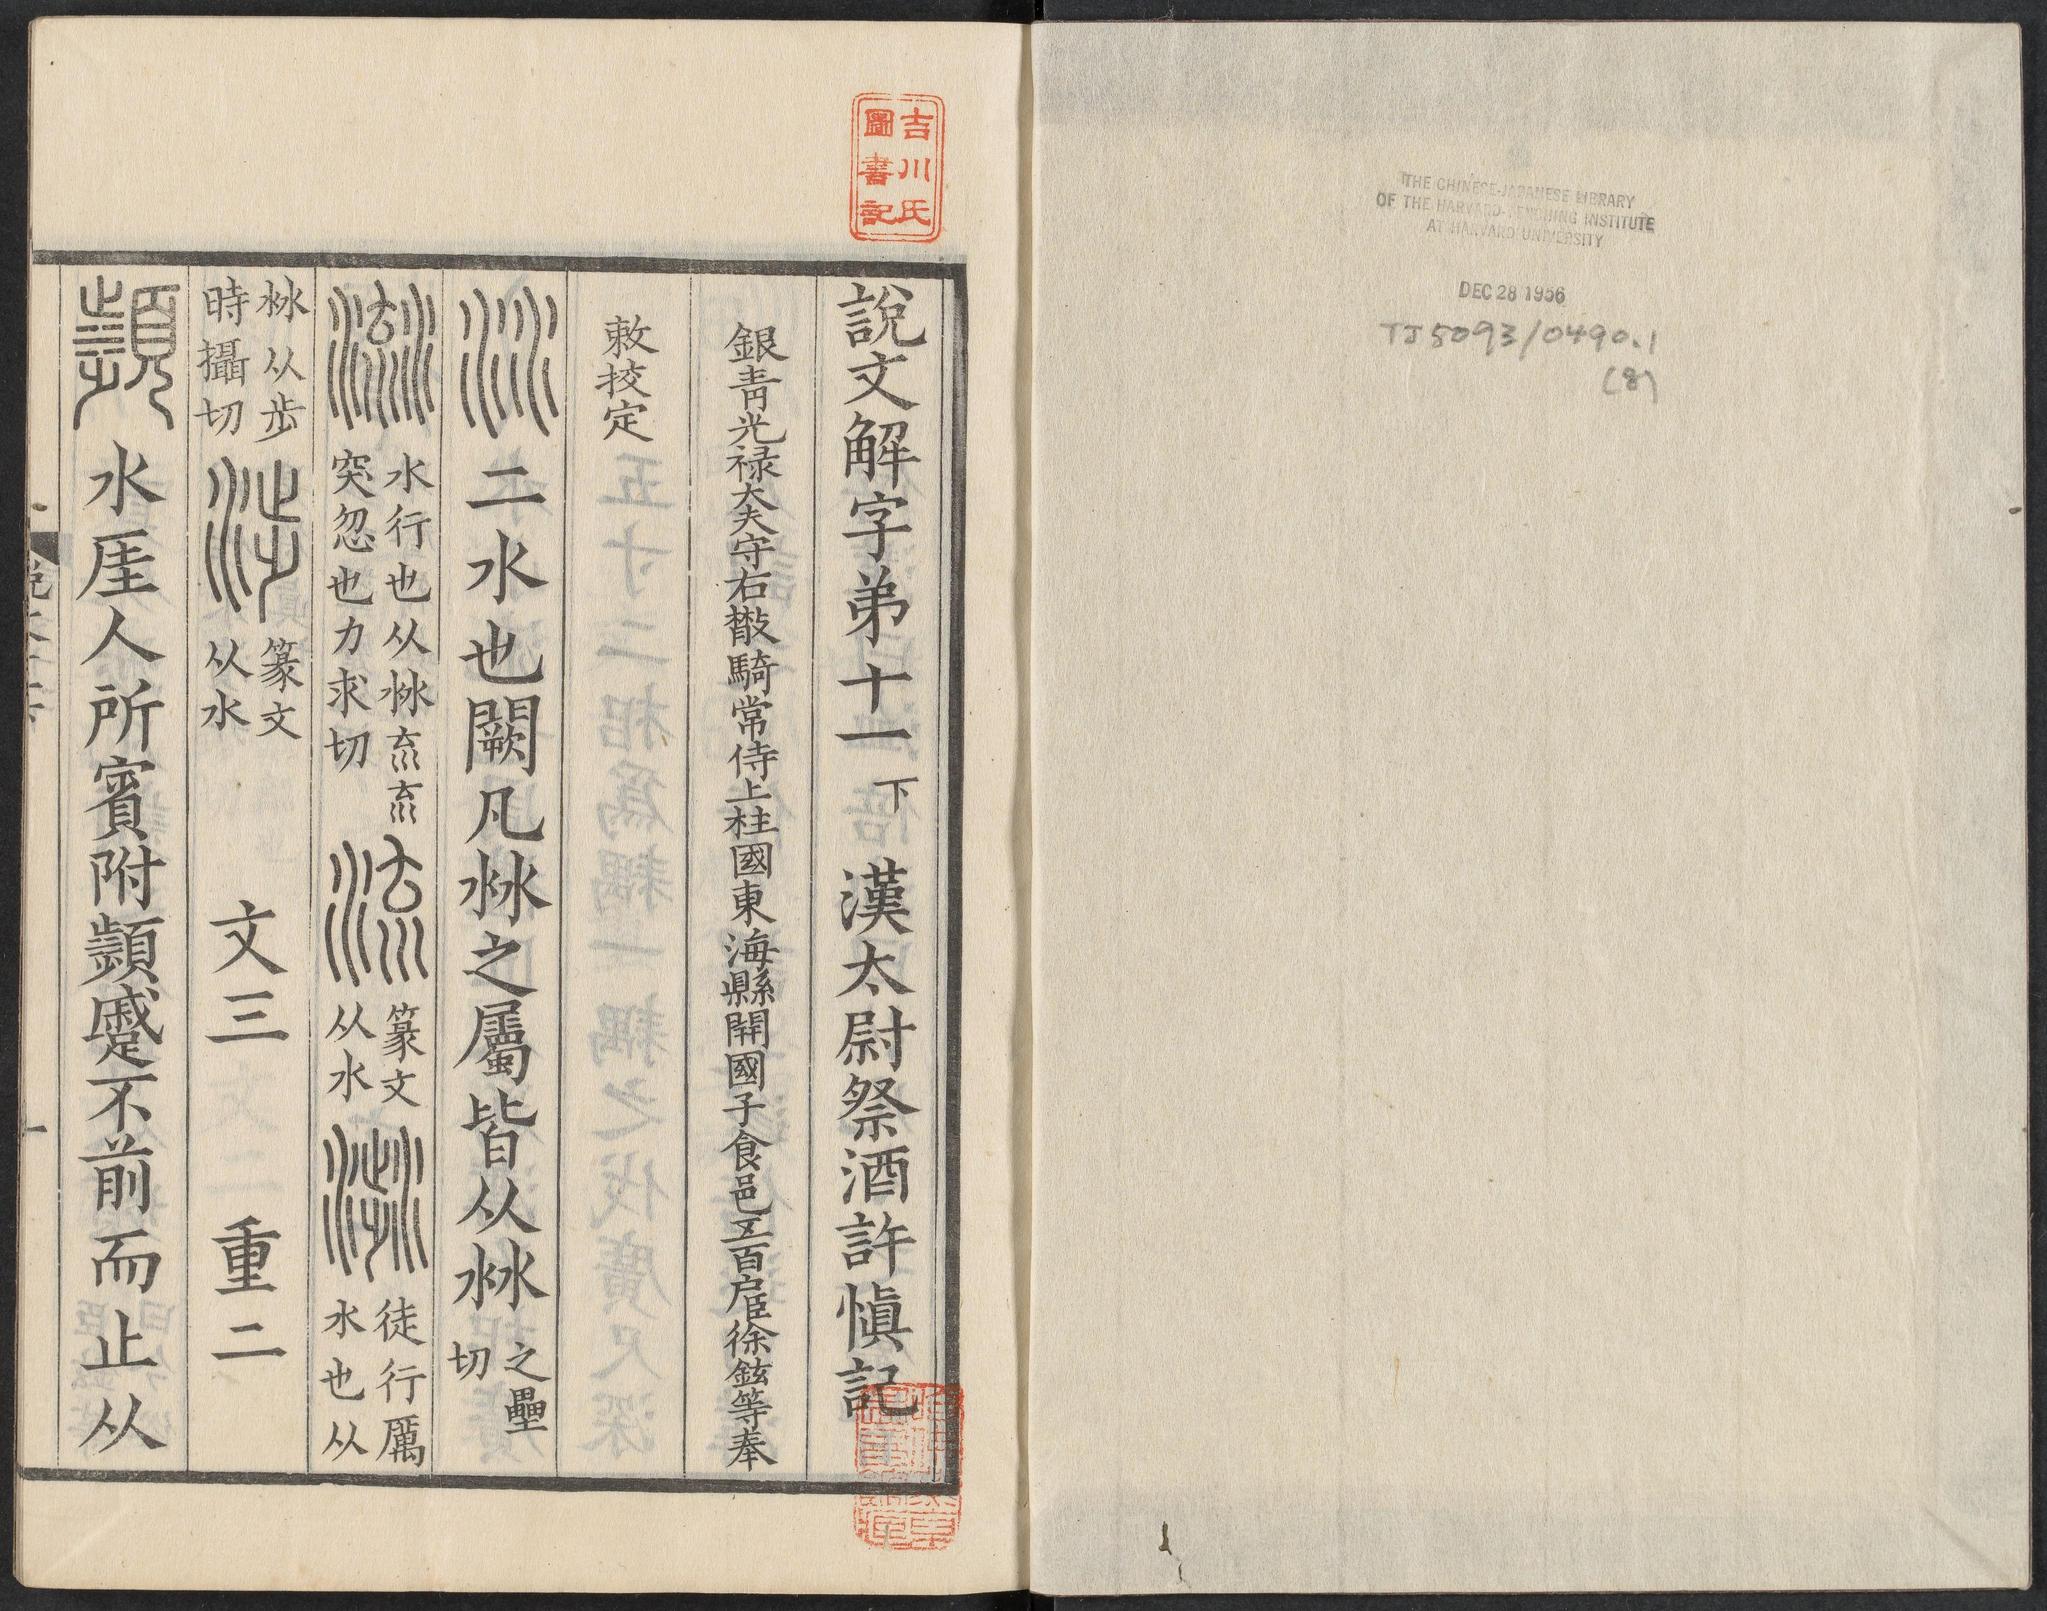 THE CHINESE-JAPANESE LIBRARY
OF THE HARVARD-YENCHING INSTITUTE
AT HARVARD UNIVERSITY
DEC 28 1956
TJ 5093/0490.1
(8)
吉川氏
圖書記
說文解字弟十一下 漢太尉祭酒許慎記
銀青光祿大夫守右散騎常侍上柱國東海縣開國子食邑五百戶臣徐鉉等奉
敕挍定
沝 二水也闕凡沝之屬皆从沝 之壘切
𣹳 水行也从沝㐬㐬突忽也力求切 流 篆文从水 𣻣 徒行厲水也从
沝从步時攝切 涉 篆文从水 文三 重二
瀕 水厓人所賓附頻蹙不前而止从